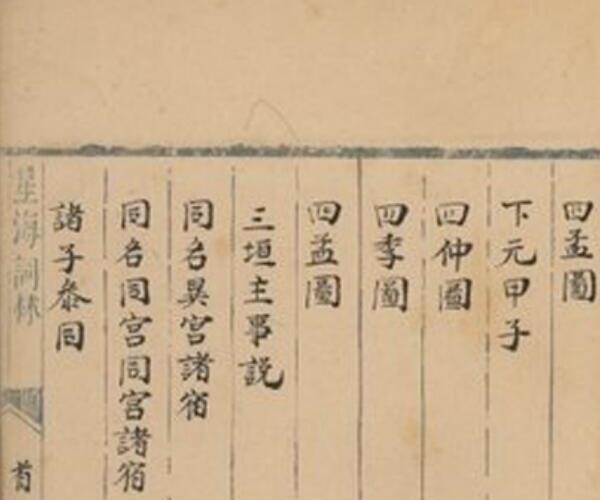 四孟圖
下元甲子
四仲圖
四季圖
四孟圖
三垣主事說
同名異宮諸宿
同名同宮同宮諸宿
諸子叅同
星海詞林
首